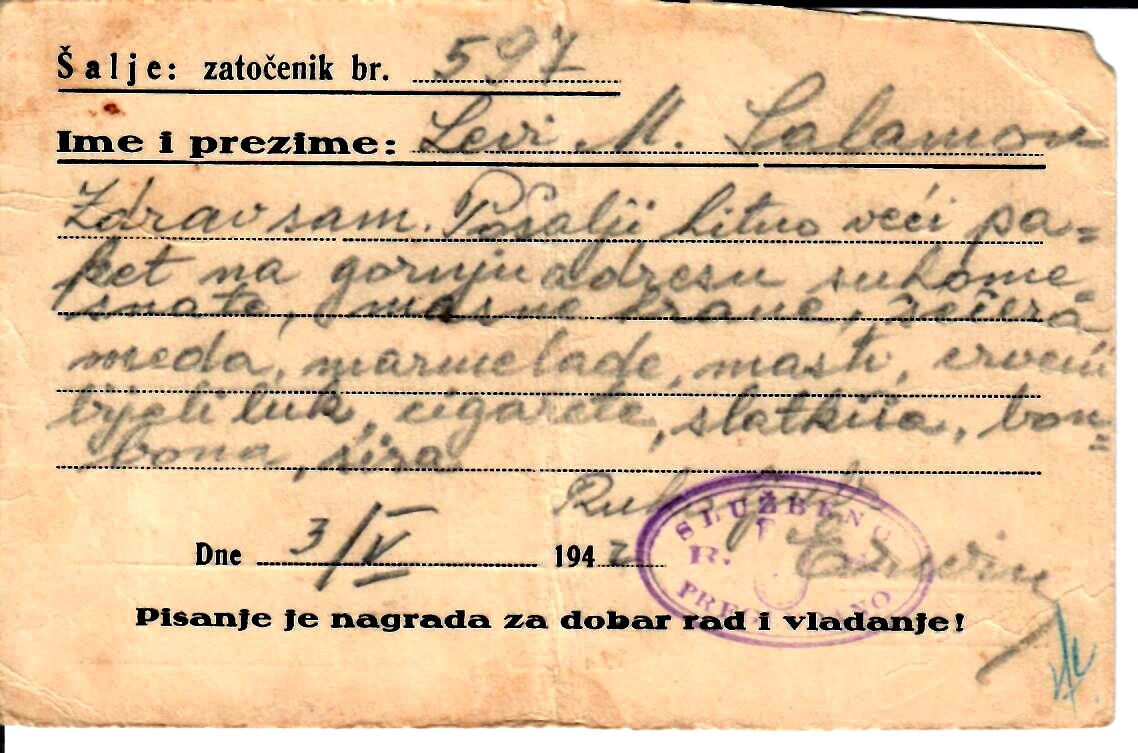 Šalje: zatočenik br. 597
Ime i prezime: Levi M. Salamon
Zdrav sam. Pošalji hitno veći pa=
ket na gornju adresu suhome-
snate, masne hrane, šećera
meda, marmelade, masti, crveni
bijeli luk, cigarete, slatkiša, bon=
bona, sira
SLUŽBENO
Dne 3/V 1942
R.
Pisanje je nagrada za dobar rad i vladanje!